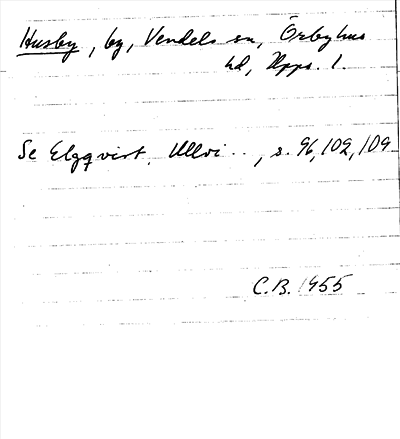 Husby, by, Vendels sn, Örbyhus
hd, Upps. l.
Se Elgqvist, Ullvi .., s. 96, 102, 109
C.B. 1955